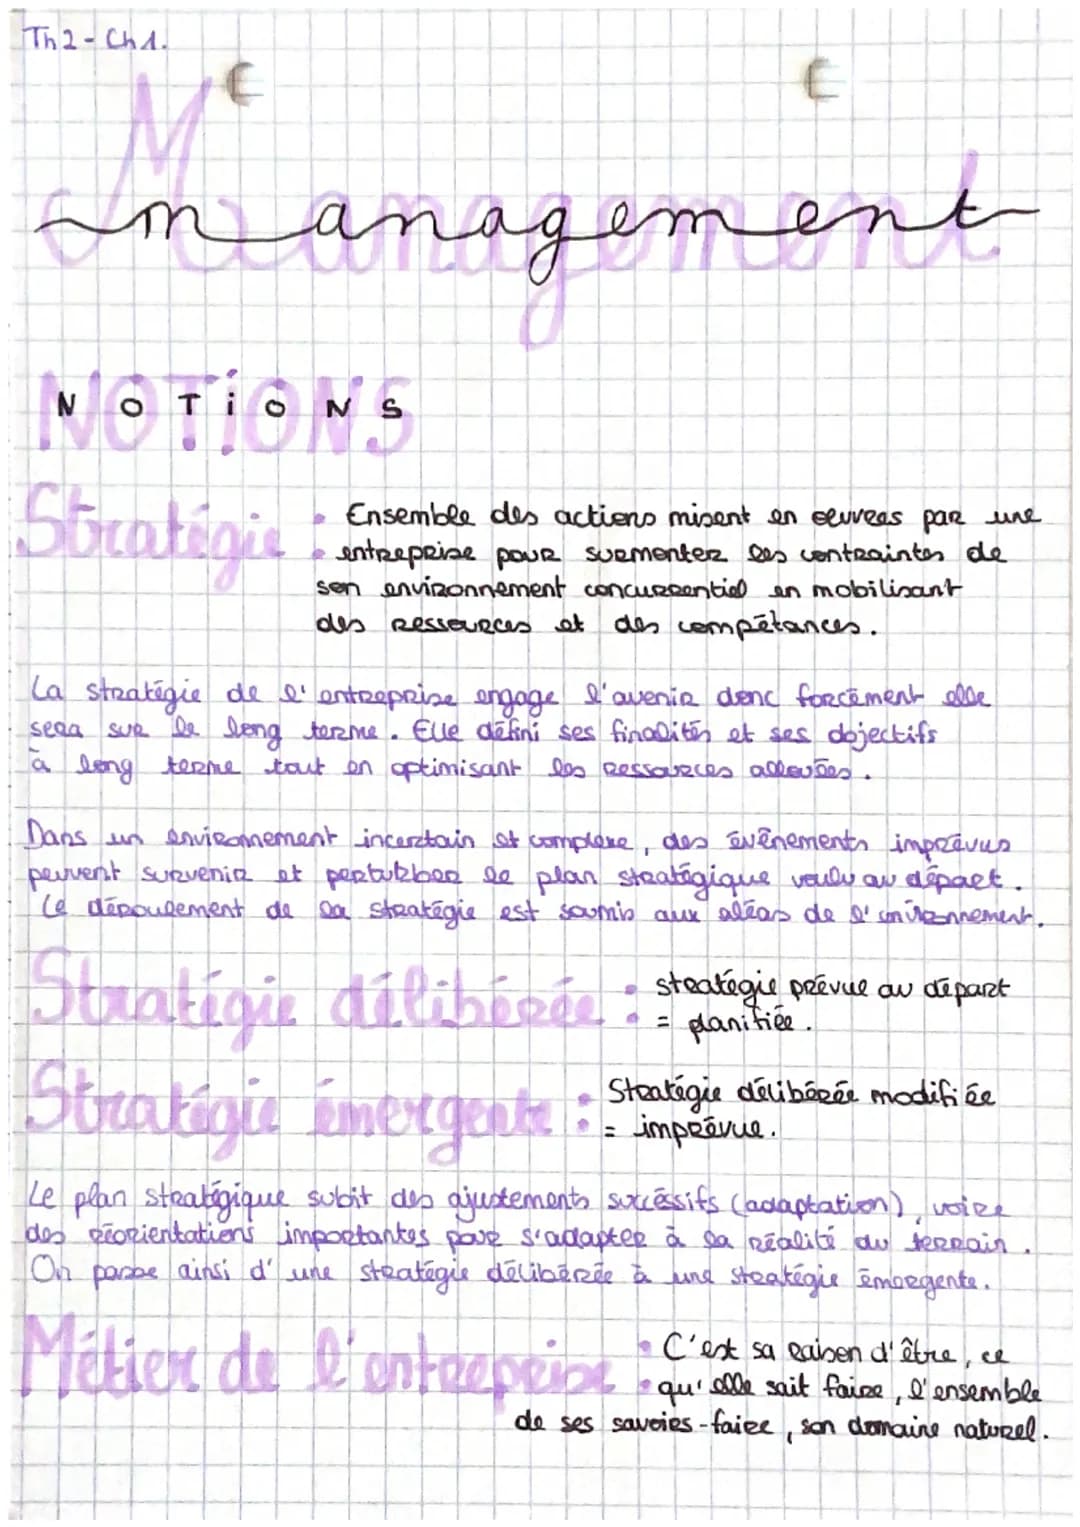 Th2 - Ch1.
Management
NOTiONS
Stratégie : Ensemble des actions misent en oeuvres par une
entreprise pour surmonter les contraintes de
son environnement concurrentiel en mobilisant
des ressources et des compétances.
La stratégie de l'entreprise engage l'avenir donc forcément elle
sera sur le long terme. Elle défini ses finalités et ses dojectifs
à long terme tout en optimisant les ressources allouées.
Dans un environnement incertain et complexe, des événements imprévus
peuvent survenir et pertubber le plan stratégique voulu au départ.
Le déroulement de la stratégie est soumis aux aléas de l'environnement.
Stratégie délibérée : stratégie prévue au départ
= planifiée.
Stratégie émergente : Stratégie délibérée modifiée
= imprévue.
Le plan stratégique subit des ajustements succéssifs (adaptation), voire
des réorientations importantes pour s'adapter à la réalité du terrain.
On passe ainsi d'une stratégie délibérée à une stratégie émergente.
Métier de l'entreprise : C'est sa raison d'être, ce
qu'elle sait faire, l'ensemble
de ses savoirs-faire, son domaine naturel.